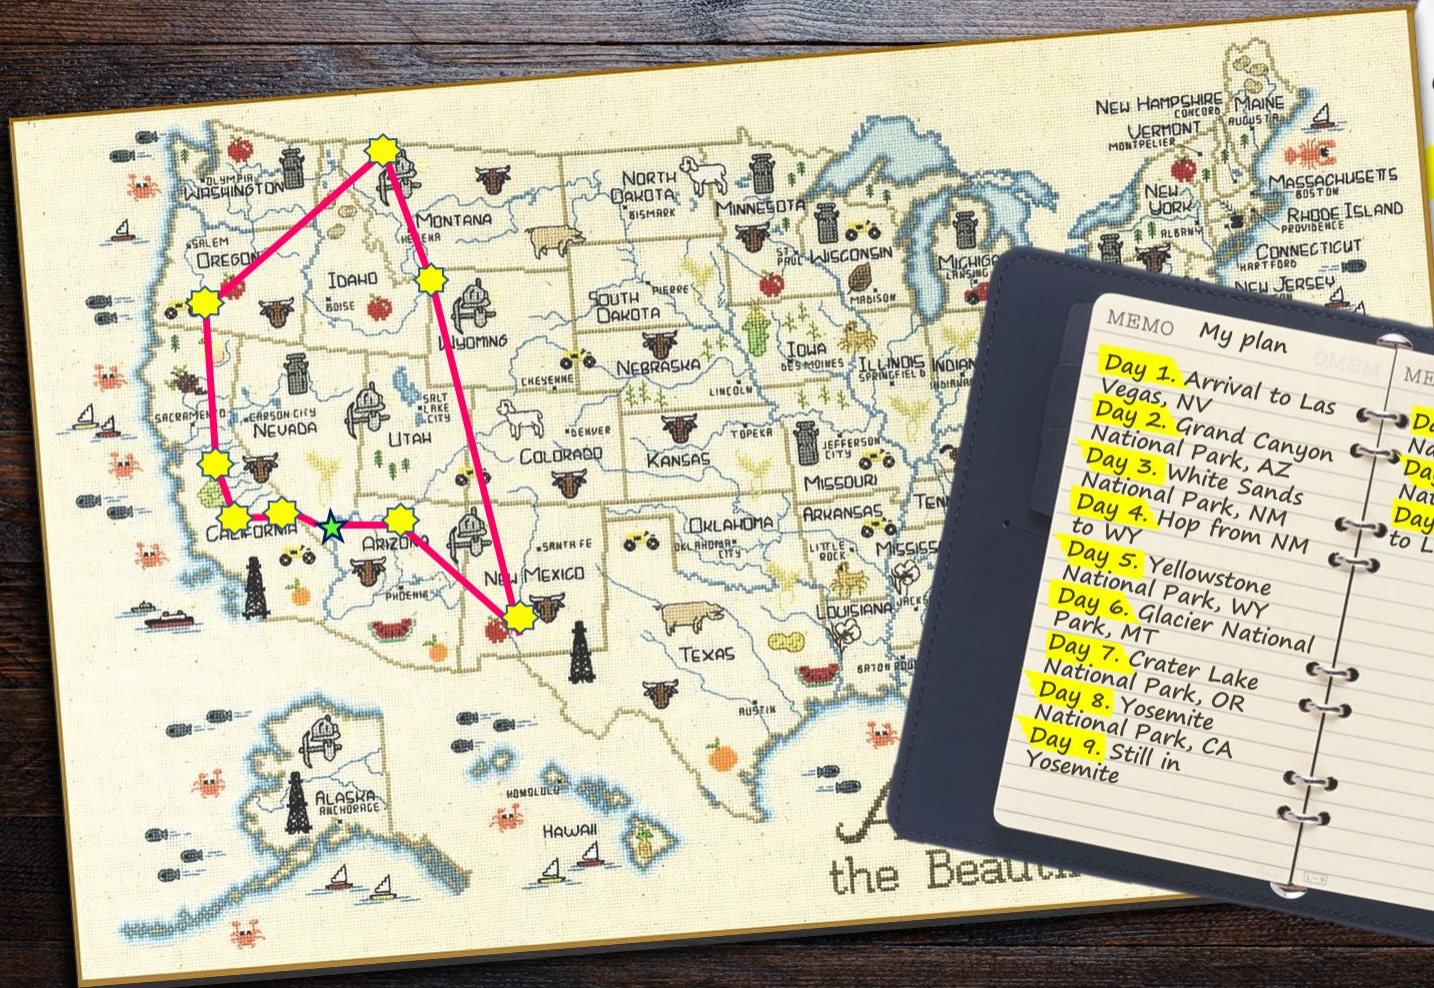 NEW HAMPSHIRE
CONCORD
MAINE
AUGUSTA
VERMONT
MONTPELIER
MASSACHUSETTS
BOSTON
NEW
YORK
ALBANY
RHODE ISLAND
PROVIDENCE
CONNECTICUT
HARTFORD
NEW JERSEY
OLYMPIA
WASHINGTON
MONTANA
HELENA
NORTH
DAKOTA
BISMARK
MINNESOTA
ST
PAUL
WISCONSIN
MADISON
MICHIG
LANSING
SALEM
OREGON
IDAHO
BOISE
WYOMING
CHEYENNE
SOUTH
DAKOTA
PIERRE
NEBRASKA
LINCOLN
IOWA
DES MOINES
ILLINOIS
SPRINGFIELD
INDIAN
SACRAMENTO
CARSON CITY
NEVADA
SALT
LAKE
CITY
UTAH
DENVER
COLORADO
TOPEKA
KANSAS
JEFFERSON
CITY
MISSOURI
CALIFORNIA
ARIZONA
PHOENIX
SANTA FE
NEW MEXICO
OKLAHOMA
OKLAHOMA
CITY
ARKANSAS
LITTLE
ROCK
TENN
MISSISS
JACKS
LOUISIANA
BATON ROU
TEXAS
AUSTIN
ALASKA
ANCHORAGE
HONOLULU
HAWAII
A
the Beauti
MEMO My plan
Day 1. Arrival to Las
Vegas, NV
Day 2. Grand Canyon
National Park, AZ
Day 3. White Sands
National Park, NM
Day 4. Hop from NM
to WY
Day 5. Yellowstone
National Park, WY
Day 6. Glacier National
Park, MT
Day 7. Crater Lake
National Park, OR
Day 8. Yosemite
National Park, CA
Day 9. Still in
Yosemite
ME
Da
Na
Day
Nat
Day
to L